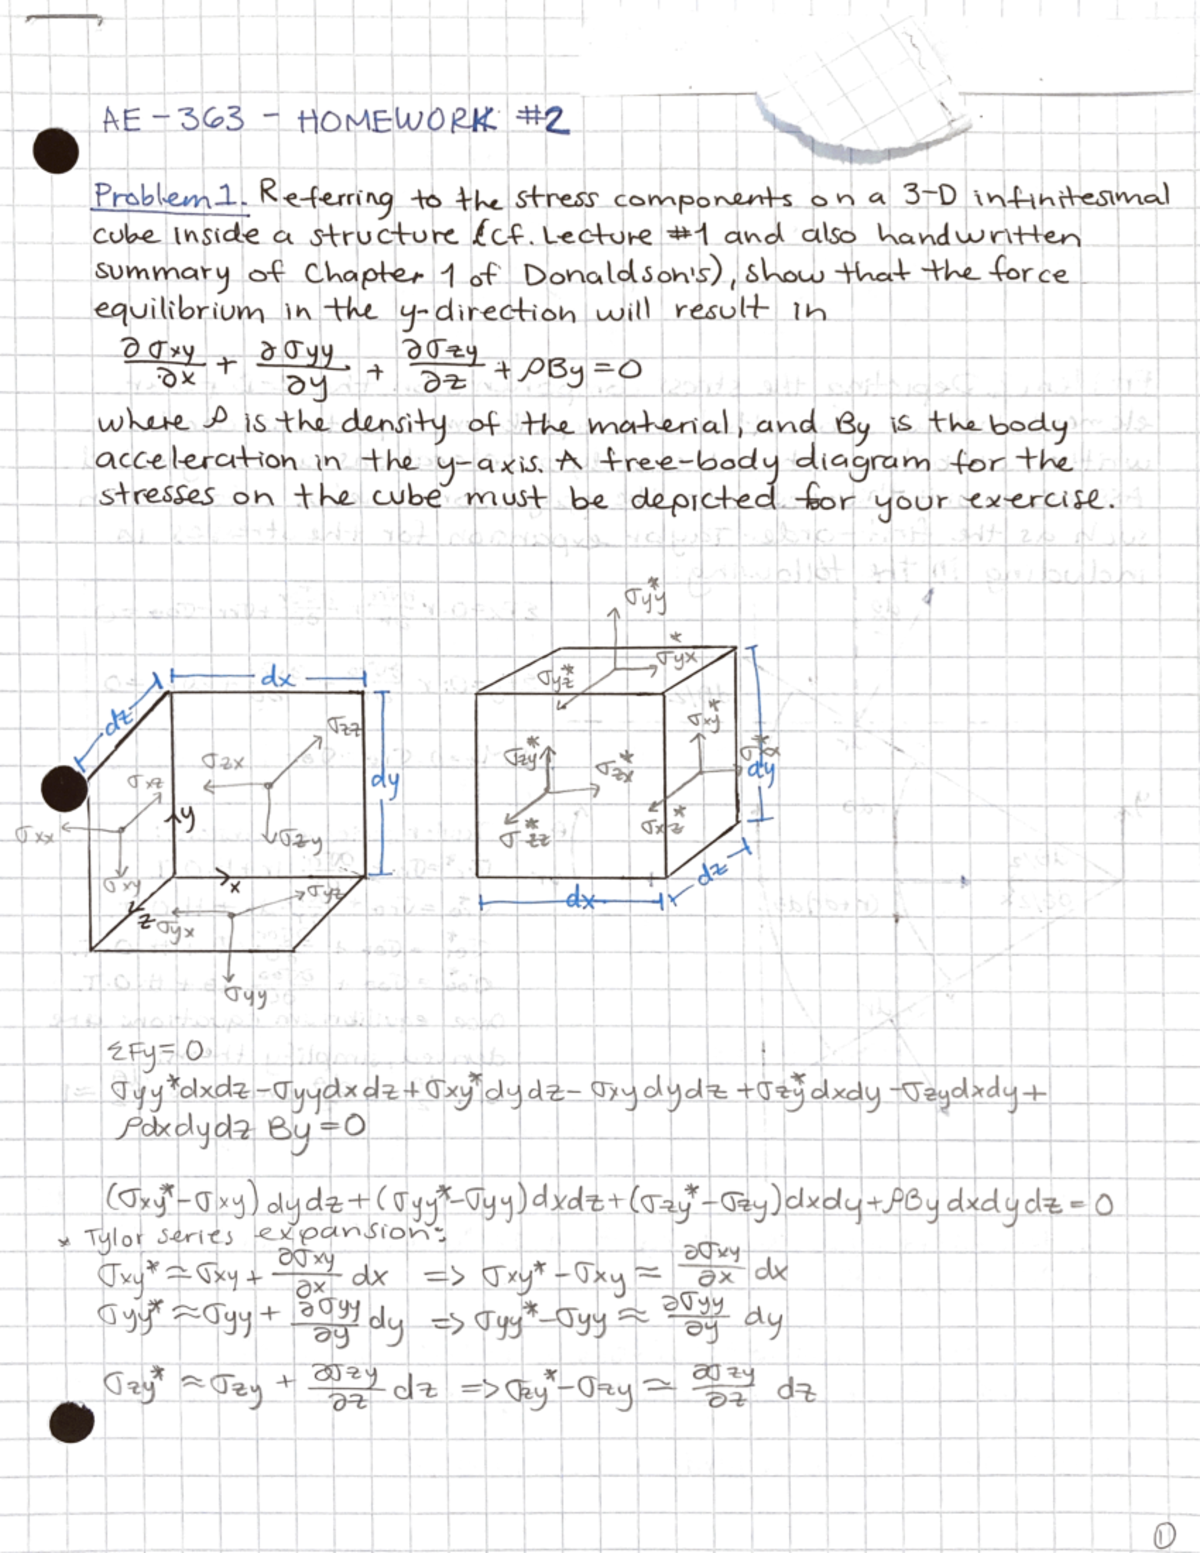 AE-363 - HOMEWORK #2
Problem 1. Referring to the stress components on a 3-D infinitesimal
cube inside a structure (cf. Lecture #1 and also handwritten
summary of Chapter 1 of Donaldson's), show that the force
equilibrium in the y-direction will result in
∂σxy/∂x + ∂σyy/∂y + ∂σzy/∂z + ρBy = 0
where ρ is the density of the material, and By is the body
acceleration in the y-axis. A free-body diagram for the
stresses on the cube must be depicted for your exercise.
σyy*
σyx*
σyz*
dx
dz
σzz
σxy*
σzy*
σzx
σzx*
σxz
dy
dy
y
σxx
σzy
σxz*
σzz*
σxy
x
σyz
dz
dx
z
σyx
σyy
ΣFy = 0
σyy*dxdz - σyydxdz + σxy*dydz - σxydydz + σzy*dxdy - σzydxdy +
ρdxdydz By = 0
(σxy* - σxy)dydz + (σyy* - σyy)dxdz + (σzy* - σzy)dxdy + ρBydxdydz = 0
* Tylor series expansion:
σxy* ≈ σxy + ∂σxy/∂x dx => σxy* - σxy ≈ ∂σxy/∂x dx
σyy* ≈ σyy + ∂σyy/∂y dy => σyy* - σyy ≈ ∂σyy/∂y dy
σzy* ≈ σzy + ∂σzy/∂z dz => σzy* - σzy ≈ ∂σzy/∂z dz
1